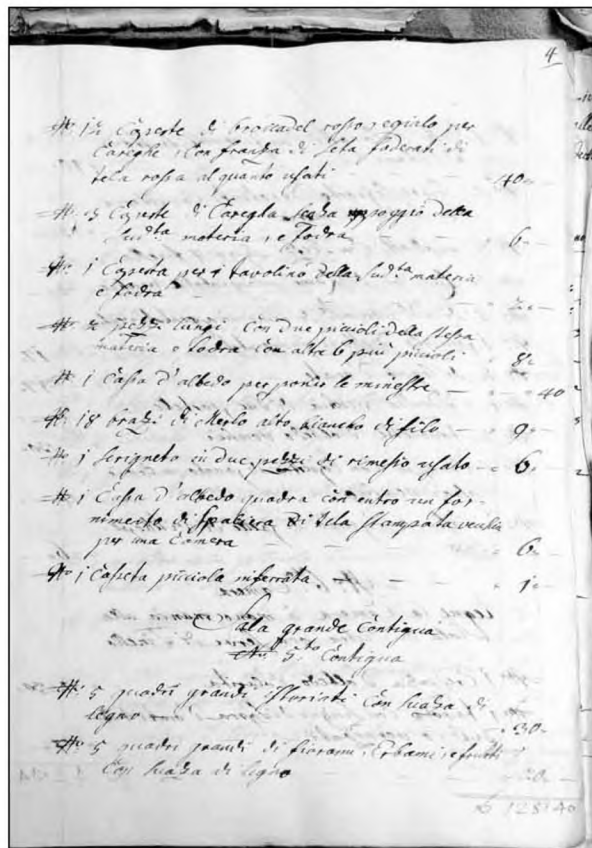 4
N.º 12 Coperte di broccadel rosso, e gialo per
Careghe, con franza di seta foderati di
tela rossa al quanto usati 40 -
N.º 3 Coperte di Caregha senza appoggio della
Sud.ta materia, e fodra 6 -
N.º 1 Coperta per i tavolino della Sud.ta materia
e fodra
N.º 2 pezzi lungi con due piccioli della stessa
materia e fodra con altri 6 più piccioli 8 -
N.º 1 Cassa d'albedo per ponir le minestre - 40
N.º 18 brazzi di Merlo alto biancho di filo - 9 -
N.º 1 Scrigneto in due pezzi di rimesso usato - 6 -
N.º 1 Cassa d'albedo quadra con entro un for-
nimento di Spaliera di tela stampata vechia
per una Camera 6 -
N.º 1 Casseta picciola inferrata - 1 -
Sala grande Contigua
Contigua
N.º 5 quadri grandi Storiati con suaza di
legno 30 -
N.º 5 quadri grandi di fiorami, Erbami, e frutti
Con suaza di legno 20 -
128:40